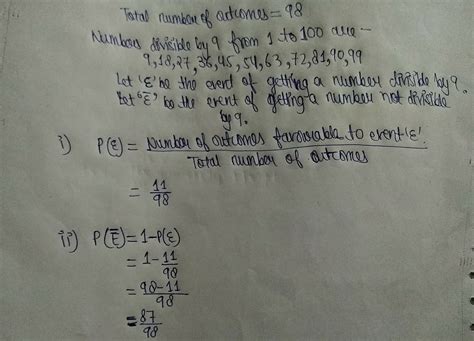 Total number of outcomes = 98
Numbers divisible by 9 from 1 to 100 are -
9,18,27,36,45,54,63,72,81,90,99
Let 'E' be the event of getting a number divisible by 9.
Let 'E̅' be the event of getting a number not divisible
by 9.
i) P(E) = Number of outcomes favourable to event 'E'.
Total number of outcomes
= 11/98
ii) P(E̅) = 1-P(E)
= 1-11/98
= 98-11/98
= 87/98